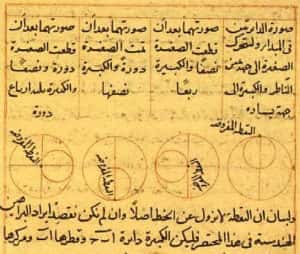 صورة الدائرتين
في المبدا ولتتحرك
الصغيرة الى جهة يمين
الناظر والكبيرة الى
جهة يساره
صورتهما بعد ان
قطعت الصغيرة
نصفا والكبيرة
ربعا
صورتهما بعد ان
تمت الصغيرة
دورة والكبيرة
نصفها
صورتهما بعد ان
قطعت الصغيرة
دورة ونصفا
والكبيرة ثلثة ارباع
دورة
النقطة المفروضة
النقطة المفروضة
النقطة المفروضة
ولبيان ان النقطة لا يزول عن الخط اصلا وان لم نكن نقصد ايراد البراهين
الهندسية في هذا المختصر فليكن الكبيرة دايرة اب وقطرها اب ومركزها